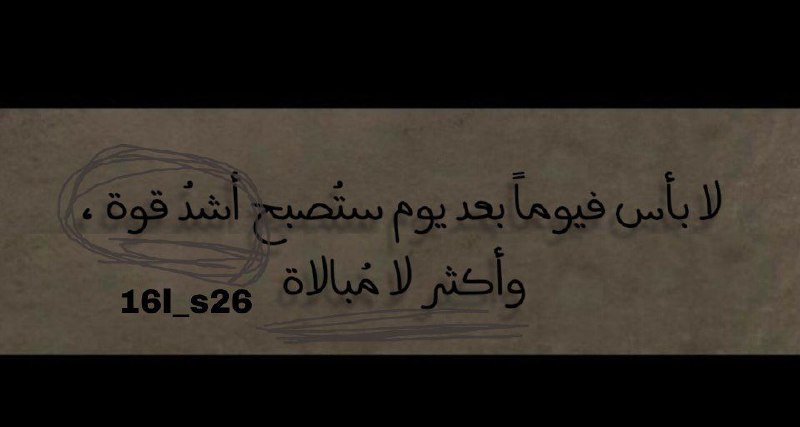 لا بأس فيوماً بعد يوم ستُصبح أشدُ قوة ،
وأكثر لا مُبالاة
16l_s26